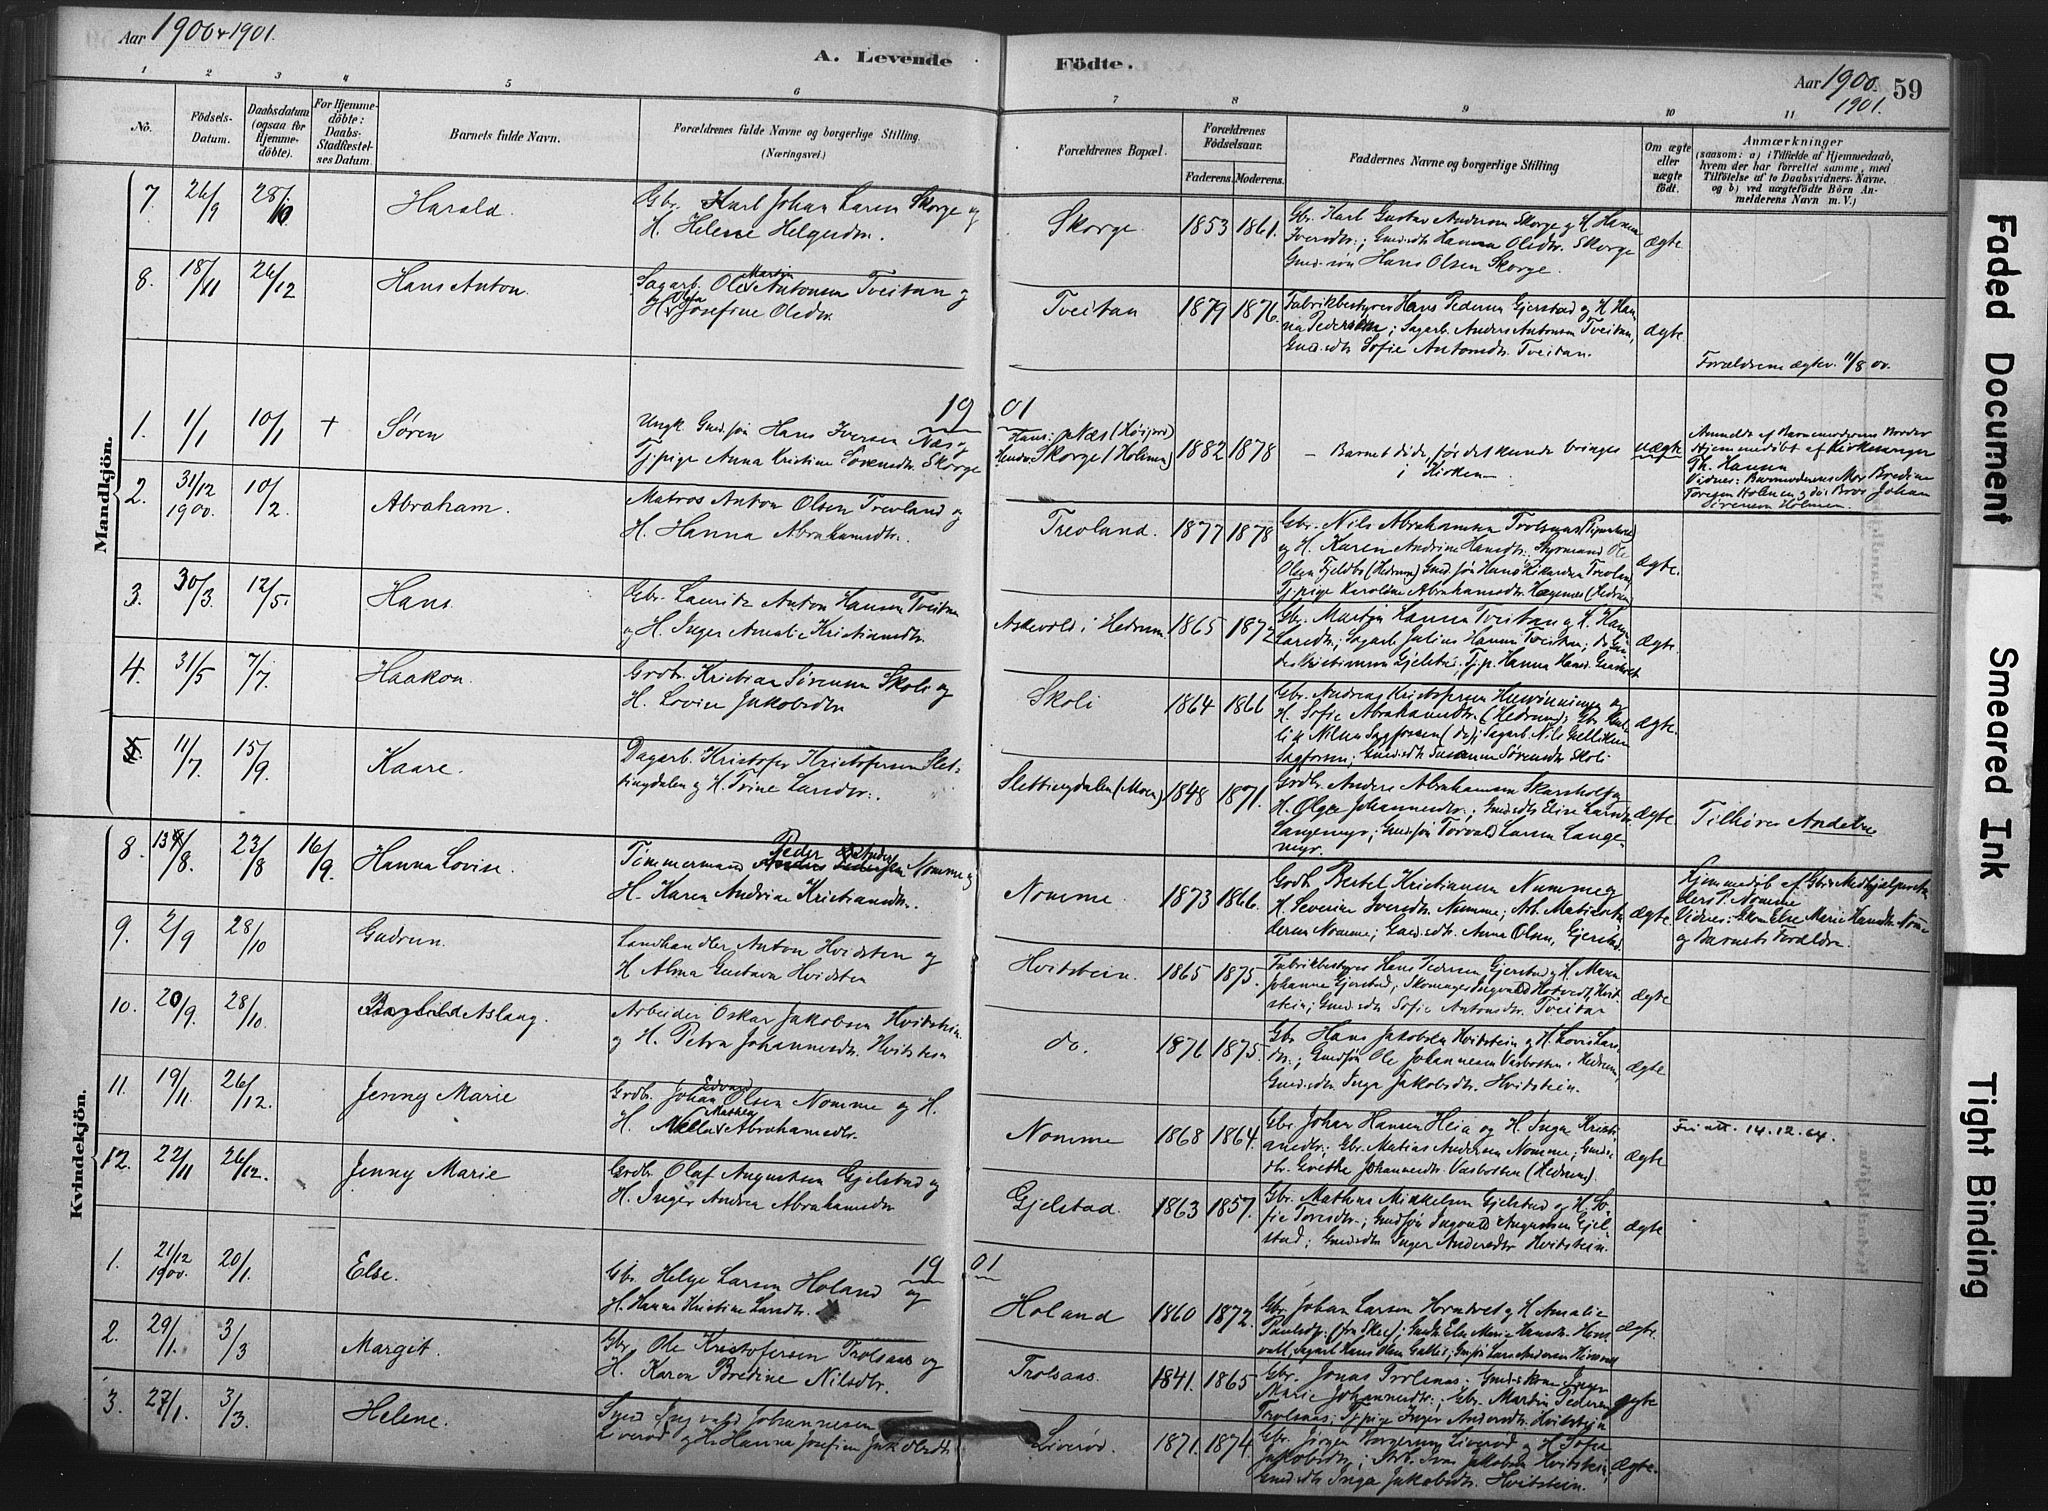 Aar 1900 & 1901.
A. Levende Födte.
Aar 1900. 1901.
59
1 2 3 4 5 6 7 8 9 10 11
No.
Födsels-Datum.
Daabsdatum (ogsaa for Hjemmedöbte).
For Hjemmedöbte: Daabs-Stadfæstelses Datum.
Barnets fulde Navn.
Forældrenes fulde Navne og borgerlige Stilling. (Næringsvei.)
Forældrenes Bopæl.
Forældrenes Födselsaar.
Faderens. Moderens.
Faddernes Navne og borgerlige Stilling
Om ægte eller uægte födt.
Anmærkninger
(saasom: a) i Tilfælde af Hjemmedaab, hvem der har forrettet samme, med Tilföielse af to Daabsvidners Navne, og b) ved uægtefödte Börn Anmelderens Navn m. V.)
Mandkjön.
7. 26/9 28/10 Harald.
Gbr. Karl Johan Larsen Skorge og
H. Helene Helgesdtr.
Skorge. 1853 1861.
Gbr. Karl Gustav Andersen Skorge og H. Hanna
Iversdtr.; Gmdsdtr. Hanna Olsdtr. Skorge
Gmd.søn Hans Olsen Skorge.
ægte
8. 18/11 26/12 Hans Anton.
Sagarb. Ole Martin Antonsen Tveitan og
H. Olga Josefine Olsdtr.
Tveitan 1879 1876.
Fabrikbestyrer Hans Pedersen Gjerstad og H. Hanna
Pedersen; Sagarb. Anders Antonsen Tveitan,
Gmdsdtr. Sofie Antonsdtr. Tveitan.
ægte
Forældrene ægtev. 11/8 00.
19 01
1. 1/1 10/1 + Søren
Ungk. Gmd.søn Hans Iversen Næs og
Tj.pige Anna Kristine Sørensdtr. Skorge
Hans: Næs (Høijord)
Hendes Skorge (Holmen)
1882 1878
- Barnet døde, før det kunde bringes
i Kirken -
uægte
Anmeldt af Barnemoderens Broder
Hjemmedøbt af Kirkesanger
Th. Hansen
Vidner: Barnemoderens Mor Bredine
Torgersen Holmen og ds. Bror Johan
Sørensen Holmen.
2. 31/12 1900. 10/2 Abraham.
Matros Anton Olsen Trevland og
H. Hanna Abrahamsdtr.
Trevland. 1877 1878
Gbr. Nils Abrahamsen Trolsaas
og H. Karen Andrine Hansdtr. Styrmand Ole
Olsen Fjeldbo (Hedrum) Gmd.søn Hans Rikardsen Trevland,
Tj.pige Karoline Abrahamsdtr. Hægenes (Hedrum)
ægte.
3. 30/3 12/5. Hans.
Gbr. Lauritz Anton Hansen Tveitan
og H. Inger Amalie Kristiansdtr.
Askevold i Hedrum. 1865 1872
Gbr. Martin Hansen Tveitan og H. Hanna
Larsdtr.; Sagarb. Julius Hansen Tveitan;
Kristiansen Gjelstad; Tj.p. Hanna Hansd.
ægte.
4. 31/5 7/7. Haakon.
Grdbr. Kristian Sørensen Skoli og
H. Lovise Jakobsdtr.
Skoli 1864 1866
Gbr. Andreas Kristofersen
H. Sofie Abrahamsdtr. (Hedrum);
Nilsen Sagfossen (do); Sagarb. Nils
Sagfossen; Gmdsdtr. Susanne Sørensdtr. Skoli
ægte.
5. 11/7. 15/9. Kaare.
Dagarb. Kristofer Kristofersen Slet-
tingdalen og H. Trine Larsdtr.
Slettingdalen (Moen) 1848 1871.
Grdbr. Anders Abrahamsen Skarsholt og
H. Olga Johannesdtr.; Gmdsdtr. Elise Larsdtr.
Langemyr; Gmdsøn Torvald Larsen Lange-
myr.
ægte.
Tilhører Andebu
Kvindekjön.
8. 13/8. 23/8 16/9. Hanna Lovise.
Tømmermand Peder Nomme og
H. Karen Andrine Kristiansdtr.
Nomme. 1873 1866.
Grdb. Bertel Kristiansen Nomme og
H. Severine Iversdtr. Nomme; Arb. Matias
Nomme; Gmdsdtr. Anna Olsen, Gjerstad.
ægte
Hjemmedøb. af Gbr. Medhjælper
P. Nomme
Vidner: Gkone Else Marie Hansdtr. Nomme
og Barnets Forældre.
9. 2/9 28/10 Gudrun.
Landhandler Anton Hvidsten og
H. Alma Gustava Hvidsten
Hvitstein. 1865 1875.
Fabrikbestyrer Hans Pedersen Gjerstad og H. Maren
Johanne Gjerstad; Skomager Ingvald Hotvedt, Hvit-
stein; Gmdsdtr. Sofie Antonsdtr. Tveitan
ægte
10. 20/9. 28/10. Ragnhild Aslaug.
Arbeider Oskar Jakobsen Hvitstein
og H. Petra Johannesdtr. Hvitstein
do. 1876 1875.
Gbr. Hans Jakobsen Hvitstein og H. Lovise Lars-
dtr.; Gmdsøn Ole Johannesen Vasbotten i Hedrum,
Gmdsdtr. Inga Jakobsdtr. Hvitstein.
ægte
11. 19/11. 26/12. Jenny Marie
Grdbr. Johan Edvard Olsen Nomme og H.
H. Mathea Abrahamsdtr.
Nomme 1868 1864.
Gbr. Johan Hansen Heia og H. Inga Kristi-
ansdtr.; Gbr. Matias Andersen Nomme; Gmds-
dtr. Grethe Johannesdtr. Vasbotten (Hedrum).
ægte
Fri att. 14.12.64.
12. 22/11 26/12. Jenny Marie
Grdbr. Olaf Augustsen Gjelstad og
H. Inger Andrea Abrahamsdtr
Gjelstad. 1863 1857.
Gbr. Mathias Mikkelsen Gjelstad og H. So-
fie Toresdtr.; Gmdsøn Ingvald Augustsen Gjel-
stad; Gmdsdtr. Inger Andersdtr. Hvitstein.
ægte
19 01
1. 21/12 1900. 20/1. Else.
Gbr. Helge Larsen Holand og
H. Hanna Kristine Larsdtr.
Holand 1860 1872.
Gbr. Johan Larsen Horntvet og H. Amalie
Paulsdtr. (fra Skee); Gmdsdtr. Else Marie Hansdtr.
Sagarb. Hans Olsen Gallis; Gmsøn Lars Andersen
ægte.
2. 29/1. 3/3 Margit.
Gbr. Ole Kristofersen Trolsaas og
H. Karen Bredine Nilsdtr.
Trolsaas. 1841. 1865
Gbr. Jonas Trolsaas; Gmdskone Inger
Marie Johannesdtr.; Gbr. Martin Pedersen
Trolsaas; Tj.pige Inger Andersdtr. Hvitstein
ægte
3. 27/1. 3/3. Helene.
Smed Ingvald Johannesen
Liverød og H. Hanna Josefine Jakobsdtr.
Liverød. 1871. 1874.
Gbr. Jørgen Borgersen Liverød og H. Sofie
Jakobsdtr.; Arb. Ivar Jakobsen Hvitstein;
Gmdsdtr. Inga Jakobsdtr. Hvitstein.
ægte.
Faded Document
Smeared Ink
Tight Binding